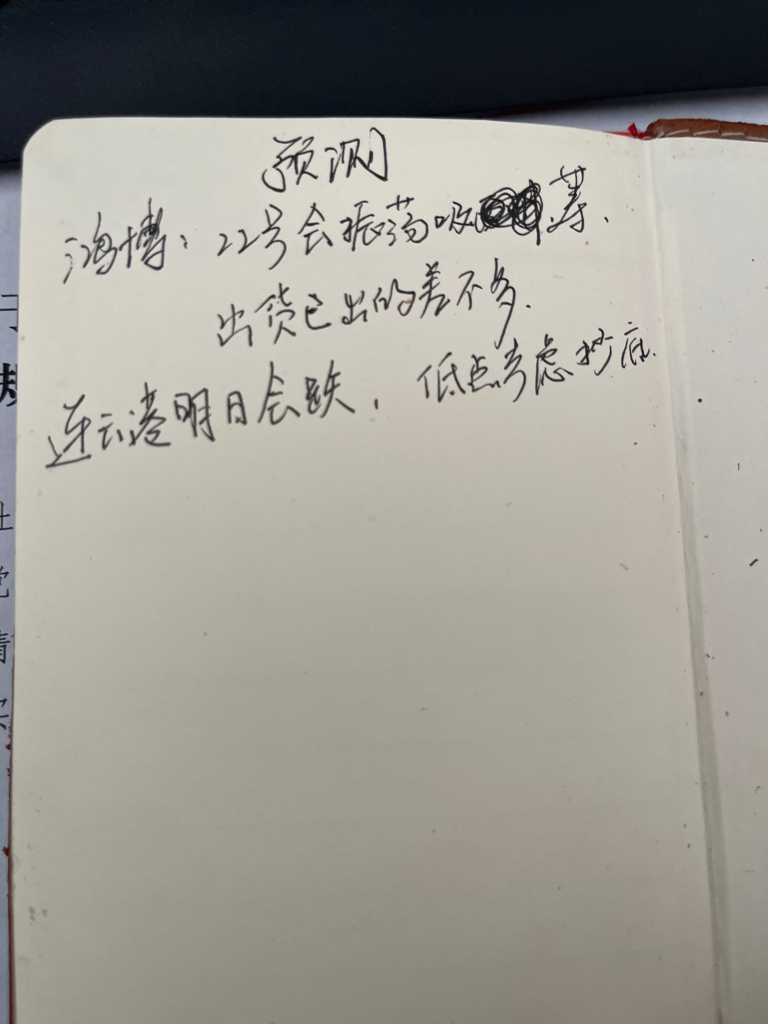 预测
鸿博：22号会振荡吸筹、
出货已出的差不多.
连云港明日会跌，低点考虑抄底.